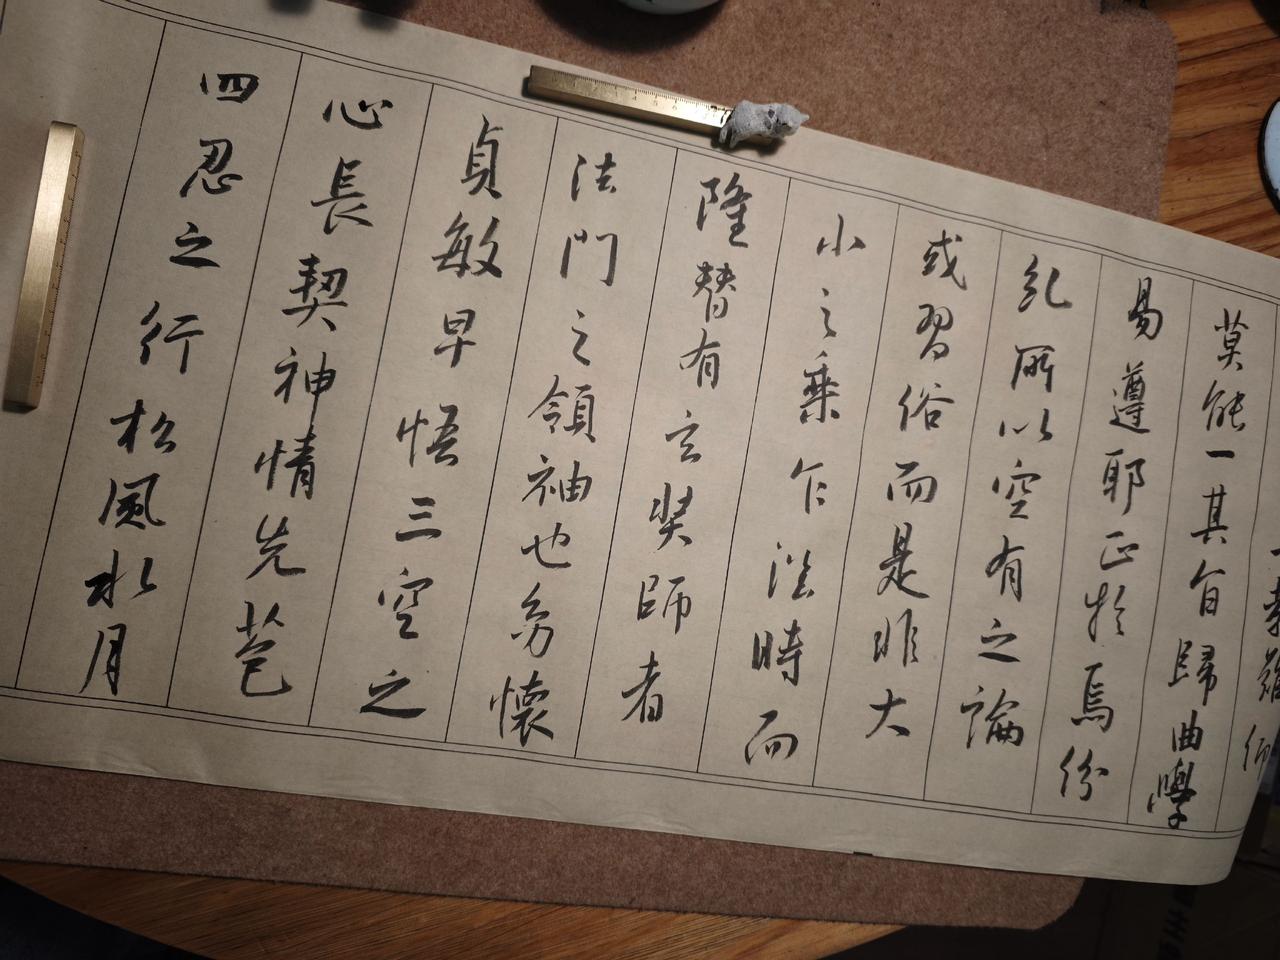 教難仰
莫能一其旨歸曲學
易遵耶正於焉紛
糺所以空有之論
或習俗而是非大
小之乘乍沿時而
隆替有玄奘師者
法門之領袖也幼懷
貞敏早悟三空之
心長契神情先苞
四忍之行松風水月